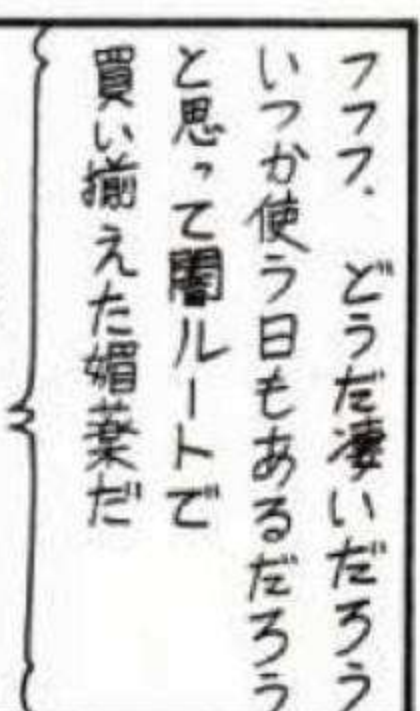 フフフ、どうだ凄いだろう
いつか使う日もあるだろう
と思って闇ルートで
買い揃えた媚薬だ